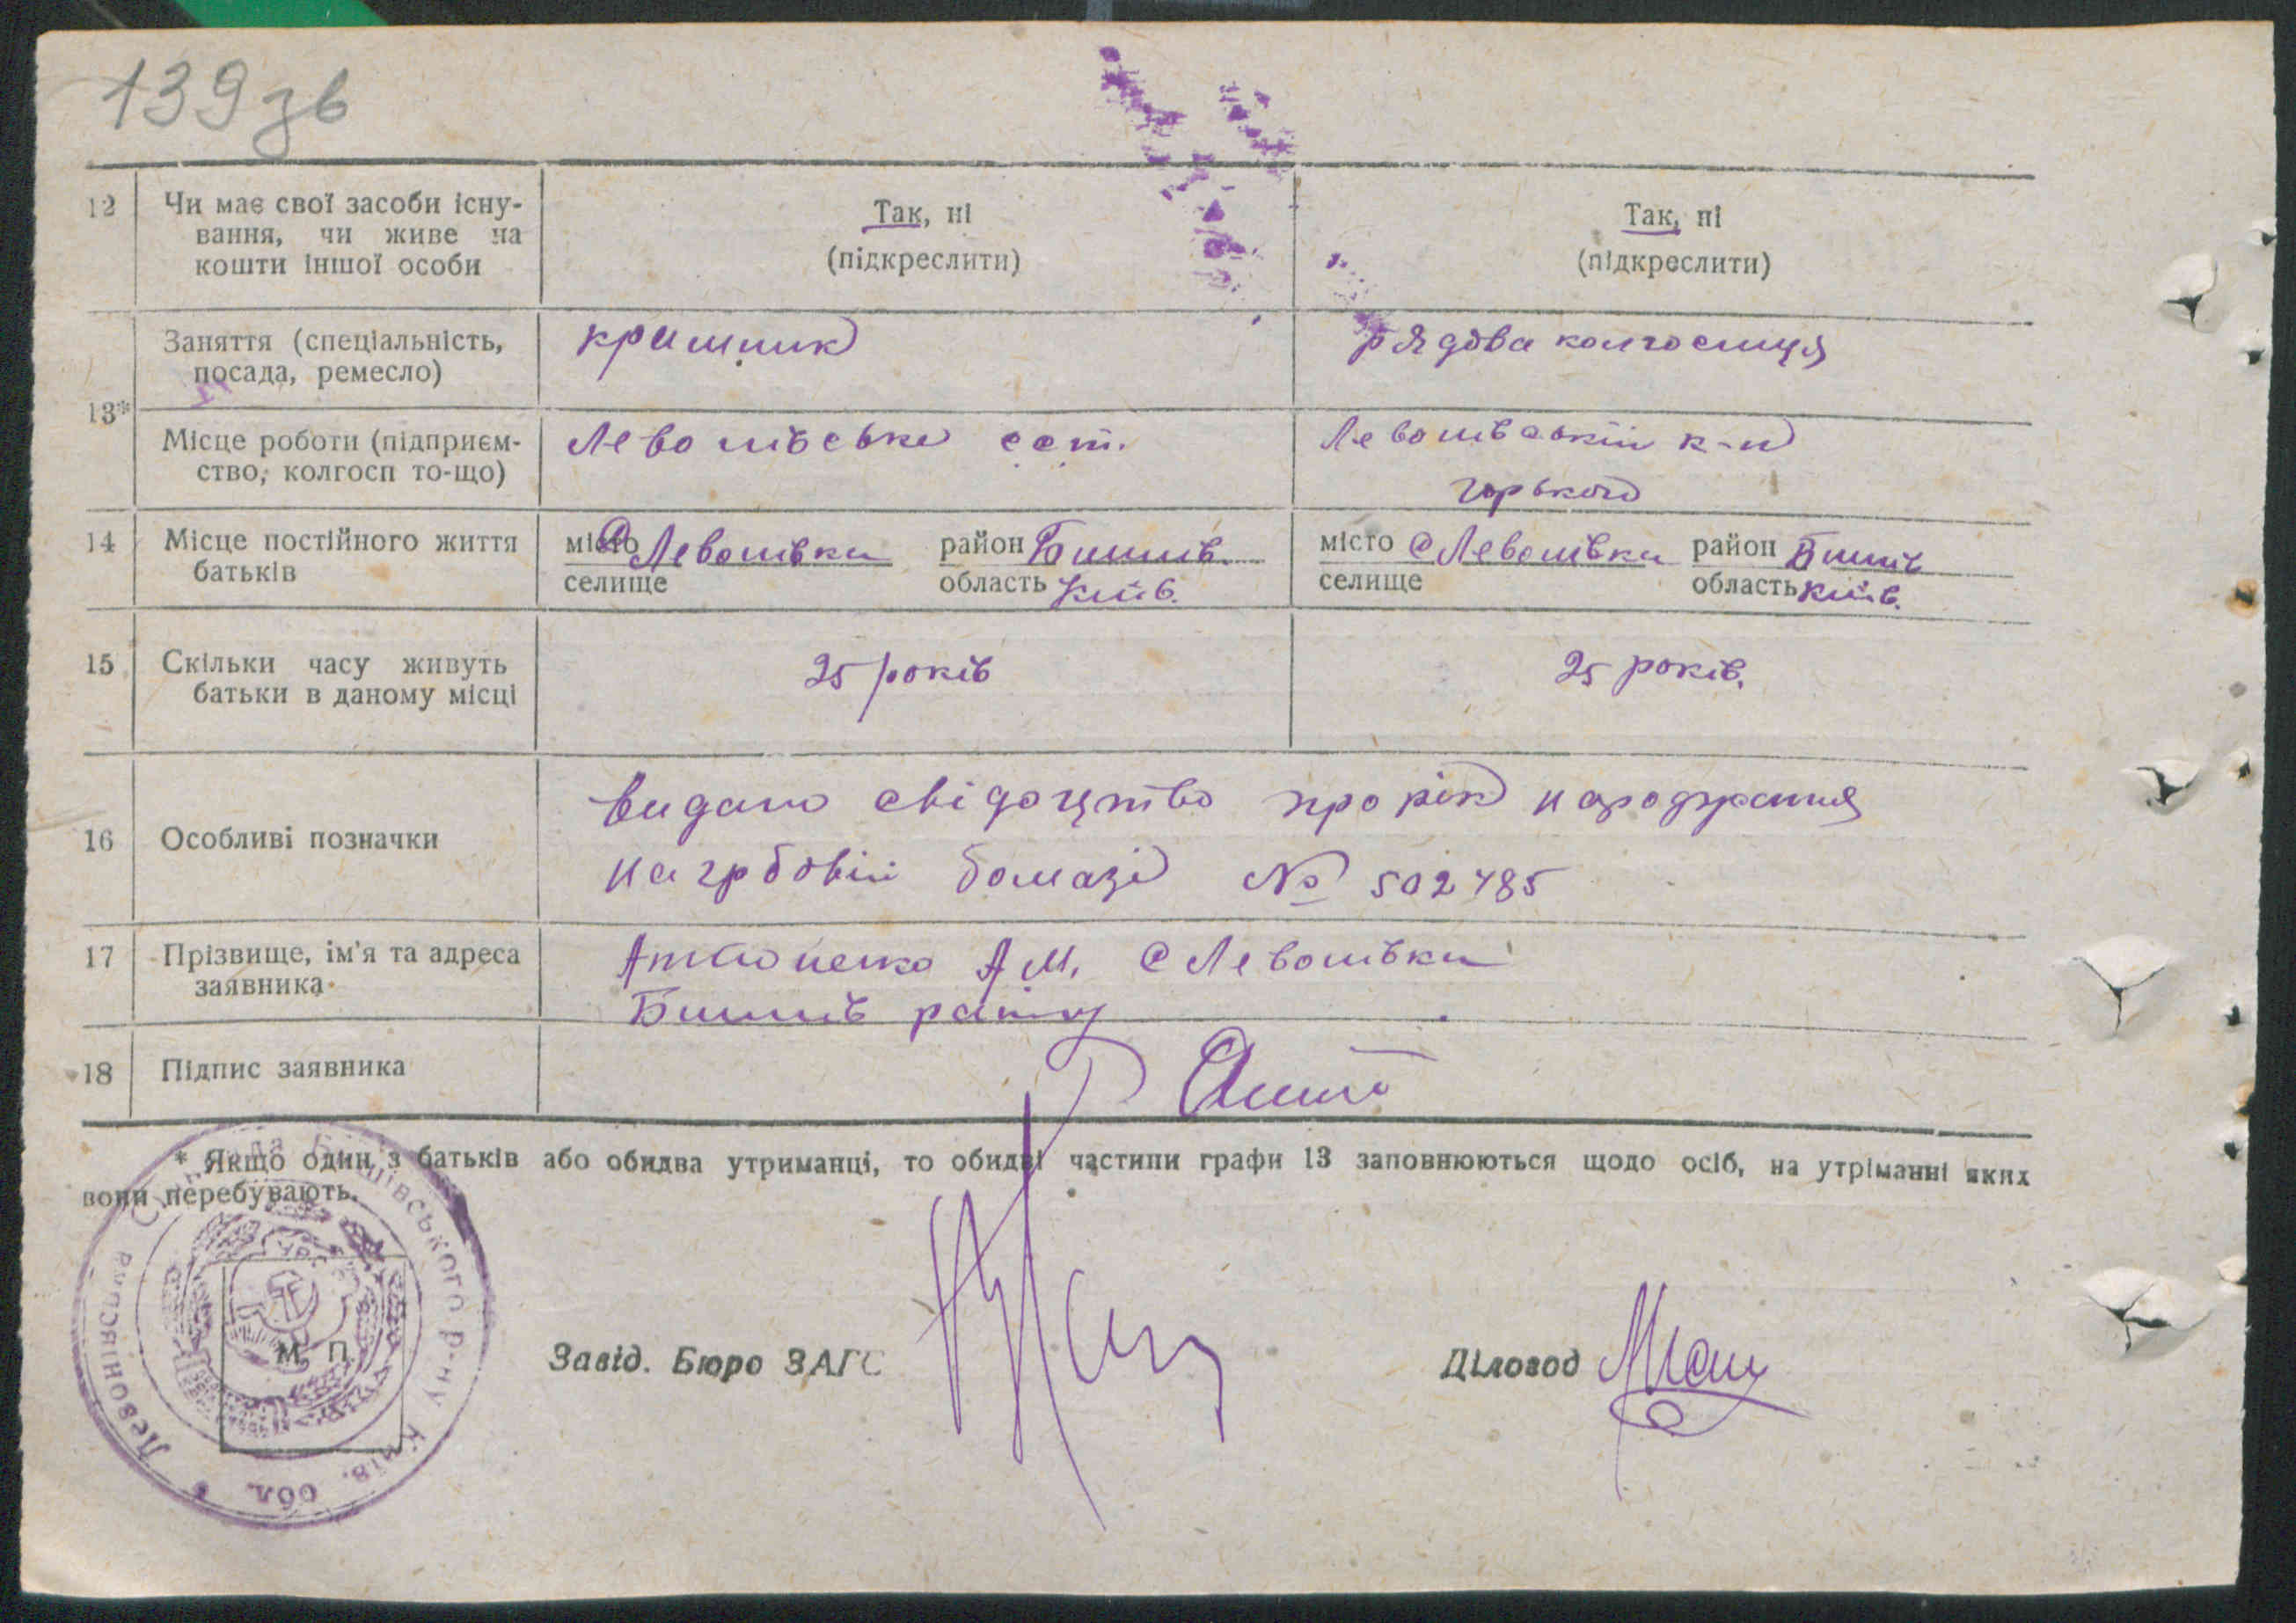 139 зв
12 Чи має свої засоби існу- Так, ні Так, ні
вання, чи живе на (підкреслити) (підкреслити)
кошти іншої особи
13* Заняття (спеціальність, кримник рядова колгоспниця
посада, ремесло)
Місце роботи (підприєм- Левонівське сст. Левонівський к-п
ство, колгосп то-що) Горького
14 Місце постійного життя місто с Левонівка район Бишів. місто с Левонівка район Бишів
батьків селище область Київ. селище область Київ.
15 Скільки часу живуть 25 років 25 років.
батьки в даному місці
16 Особливі позначки видано свідоцтво про рік народження
на грбовій бомазі № 502485
17 Прізвище, ім'я та адреса Антоненко А М. с Левонівка
заявника Бишів райну
18 Підпис заявника
* Якщо один з батьків або обидва утриманці, то обидві частини графи 13 заповнюються щодо осіб, на утріманні яких
вони перебувають.
М. П.
Завід. Бюро ЗАГС Діловод
Сільрада Бишівського р-ну Київ. обл. * Левонівська
УРСР